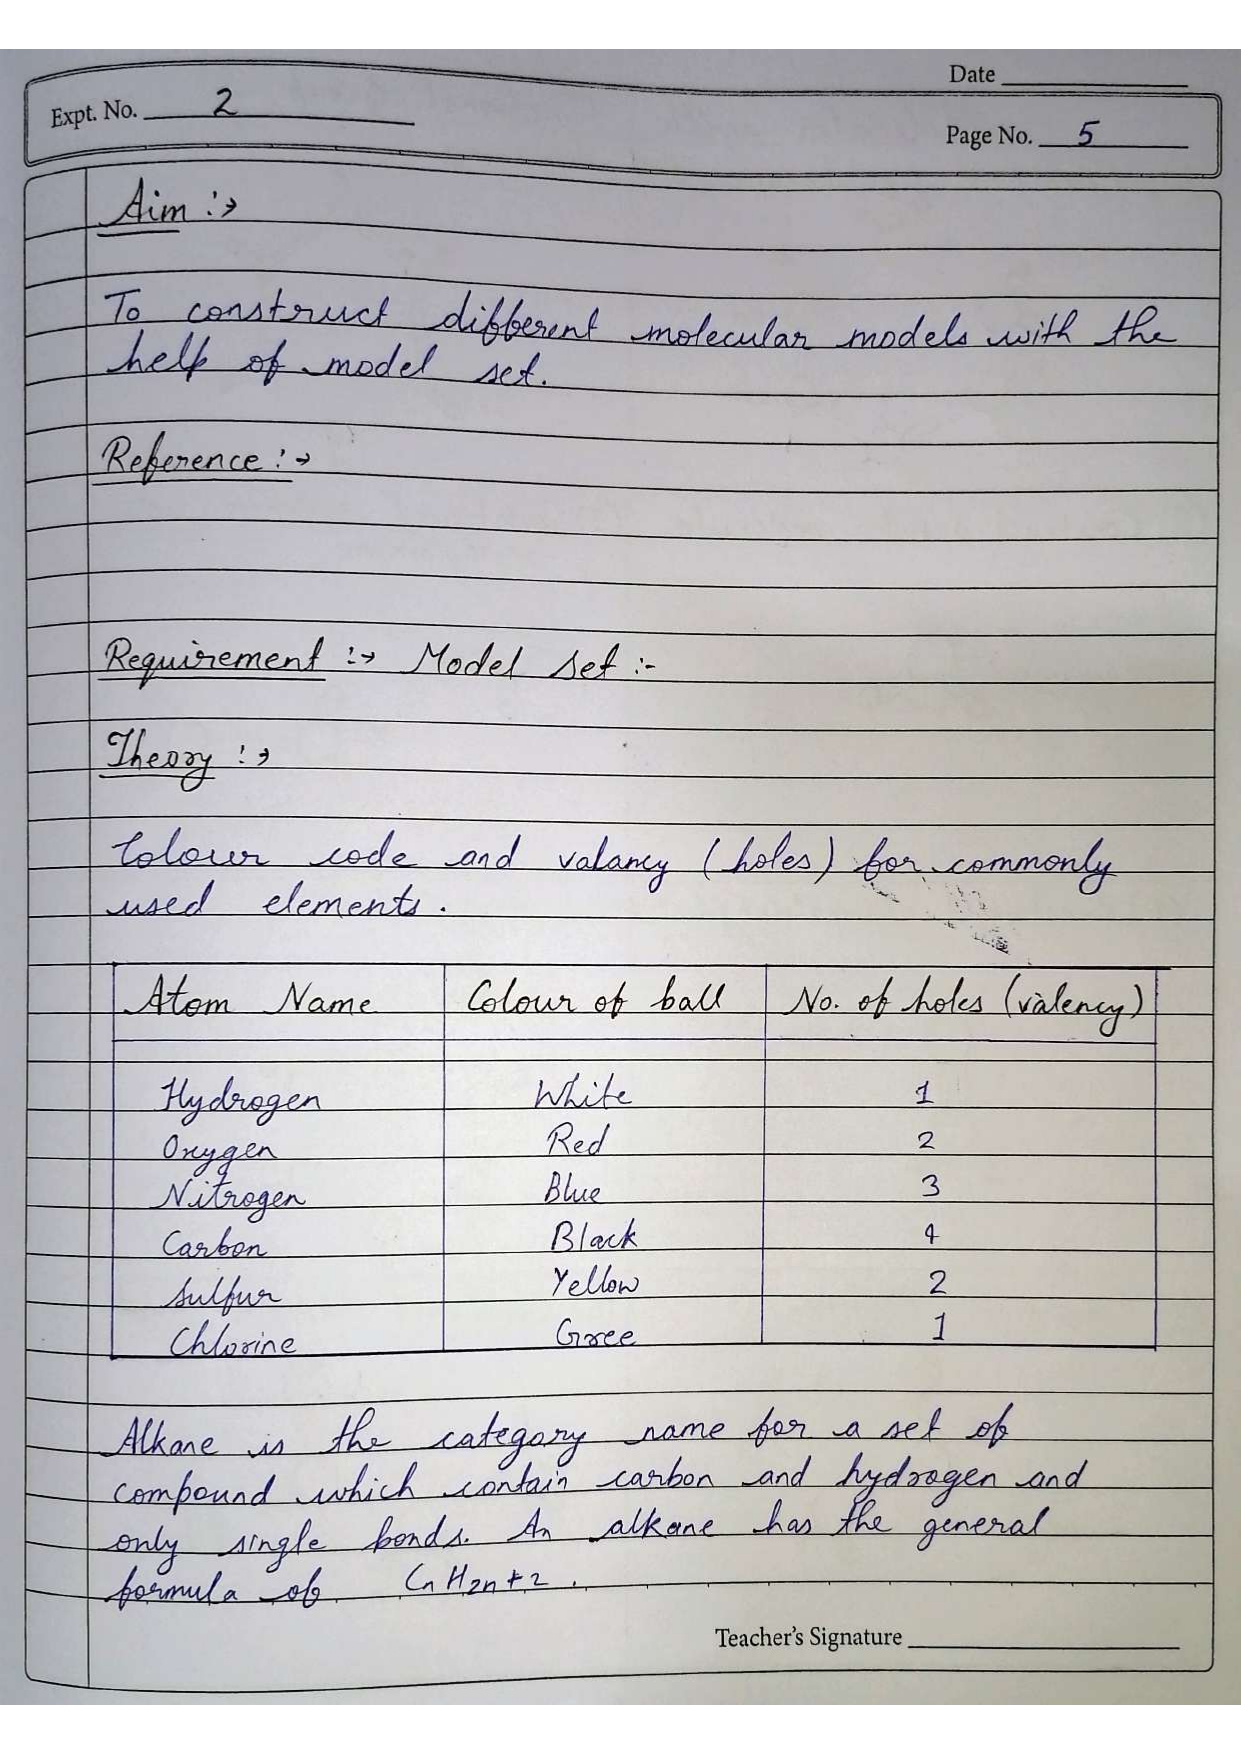 Date
Expt. No. 2
Page No. 5
Aim :→
To construct different molecular models with the
help of model set.
Reference :→
Requirement :→ Model Set :-
Theory :→
Colour code and valancy (holes) for commonly
used elements.
Atom Name Colour of ball No. of holes (valency)
Hydrogen White 1
Oxygen Red 2
Nitrogen Blue 3
Carbon Black 4
Sulfur Yellow 2
Chlorine Gree 1
Alkane is the category name for a set of
compound which contain carbon and hydrogen and
only single bonds. An alkane has the general
formula of CnH2n+2.
Teacher's Signature